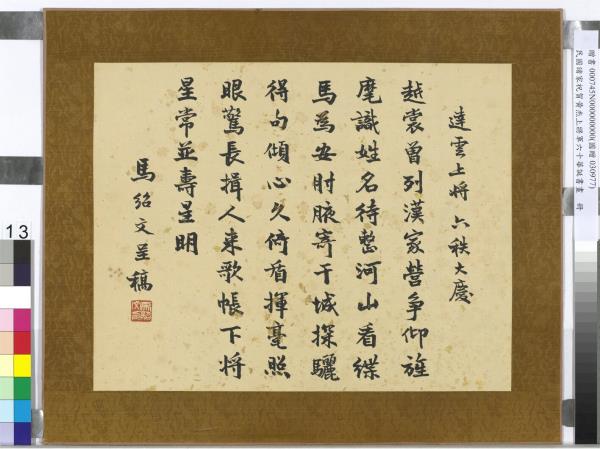 贈書 000745N000000000(國贈 030977)
民國諸家祝賀黃杰上將軍六十華誕書畫 冊
達雲上将六秩大慶
越裳曾列漢家營爭仰旌
麾識姓名待整河山看緤
馬為安肘腋寄干城探驪
得句傾心久倚盾揮毫照
眼驚長揖人来歌帳下将
星常並壽星明
馬紹文呈稿
13